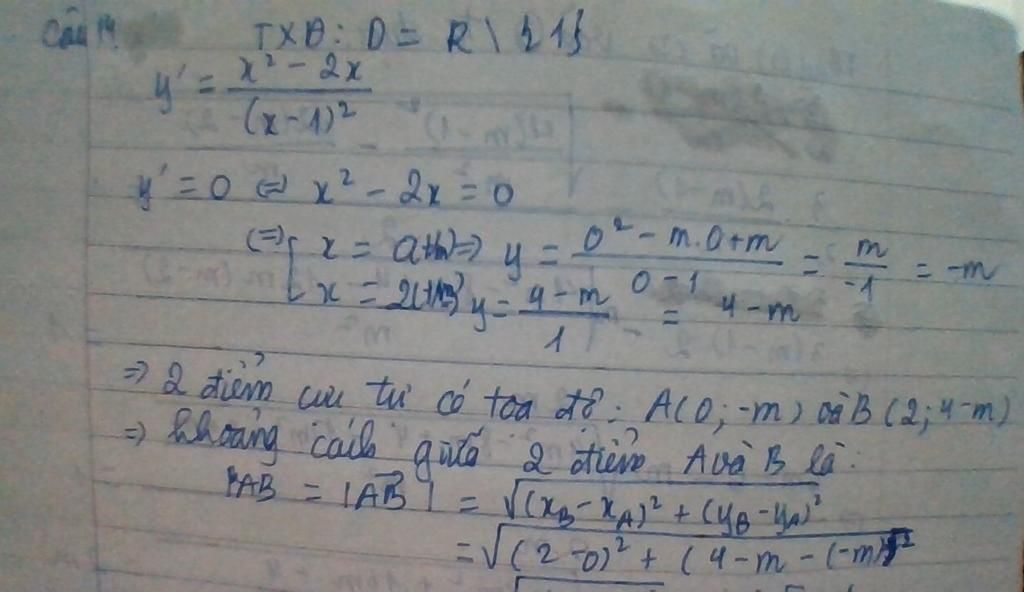 Câu 14. TXĐ: D = R \ {1}
y' = (x² - 2x)/(x-1)²
y' = 0 ⇔ x² - 2x = 0
⇔ [ x = 0 (tm) ⇒ y = (0² - m.0+m)/(0-1) = m/-1 = -m
x = 2 (tm) y = (4-m)/1 = 4-m
⇒ 2 điểm cực trị có toạ độ: A(0; -m) và B(2; 4-m)
⇒ khoảng cách giữa 2 điểm A và B là:
AB = |AB| = √(x_B - x_A)² + (y_B - y_A)²
= √(2-0)² + (4-m-(-m))²